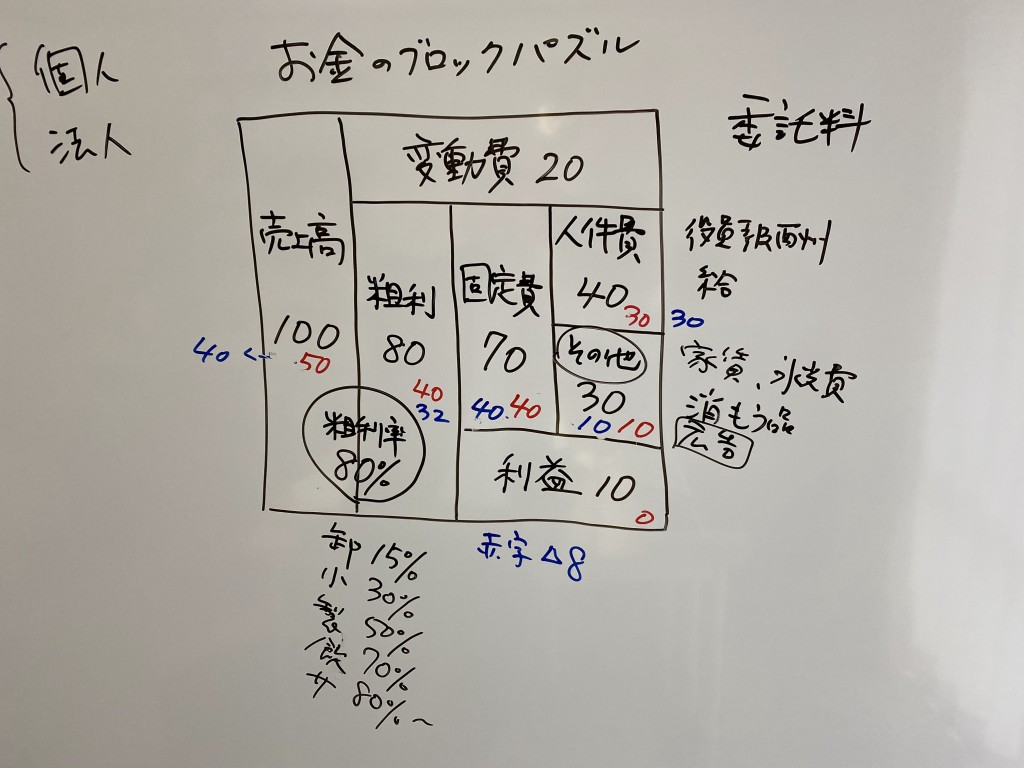 お金のブロックパズル
個人
法人
委託料
変動費 20
売上高
100
50
40 ←
粗利
80
40
32
粗利率
80%
固定費
70
40
40
人件費
40
30
30
役員報酬
給
その他
30
10
10
家賃、水光費
消もう品
広告
利益 10
0
赤字 △8
卸 15%
小 30%
製 50%
飲 70%
サ 80%~